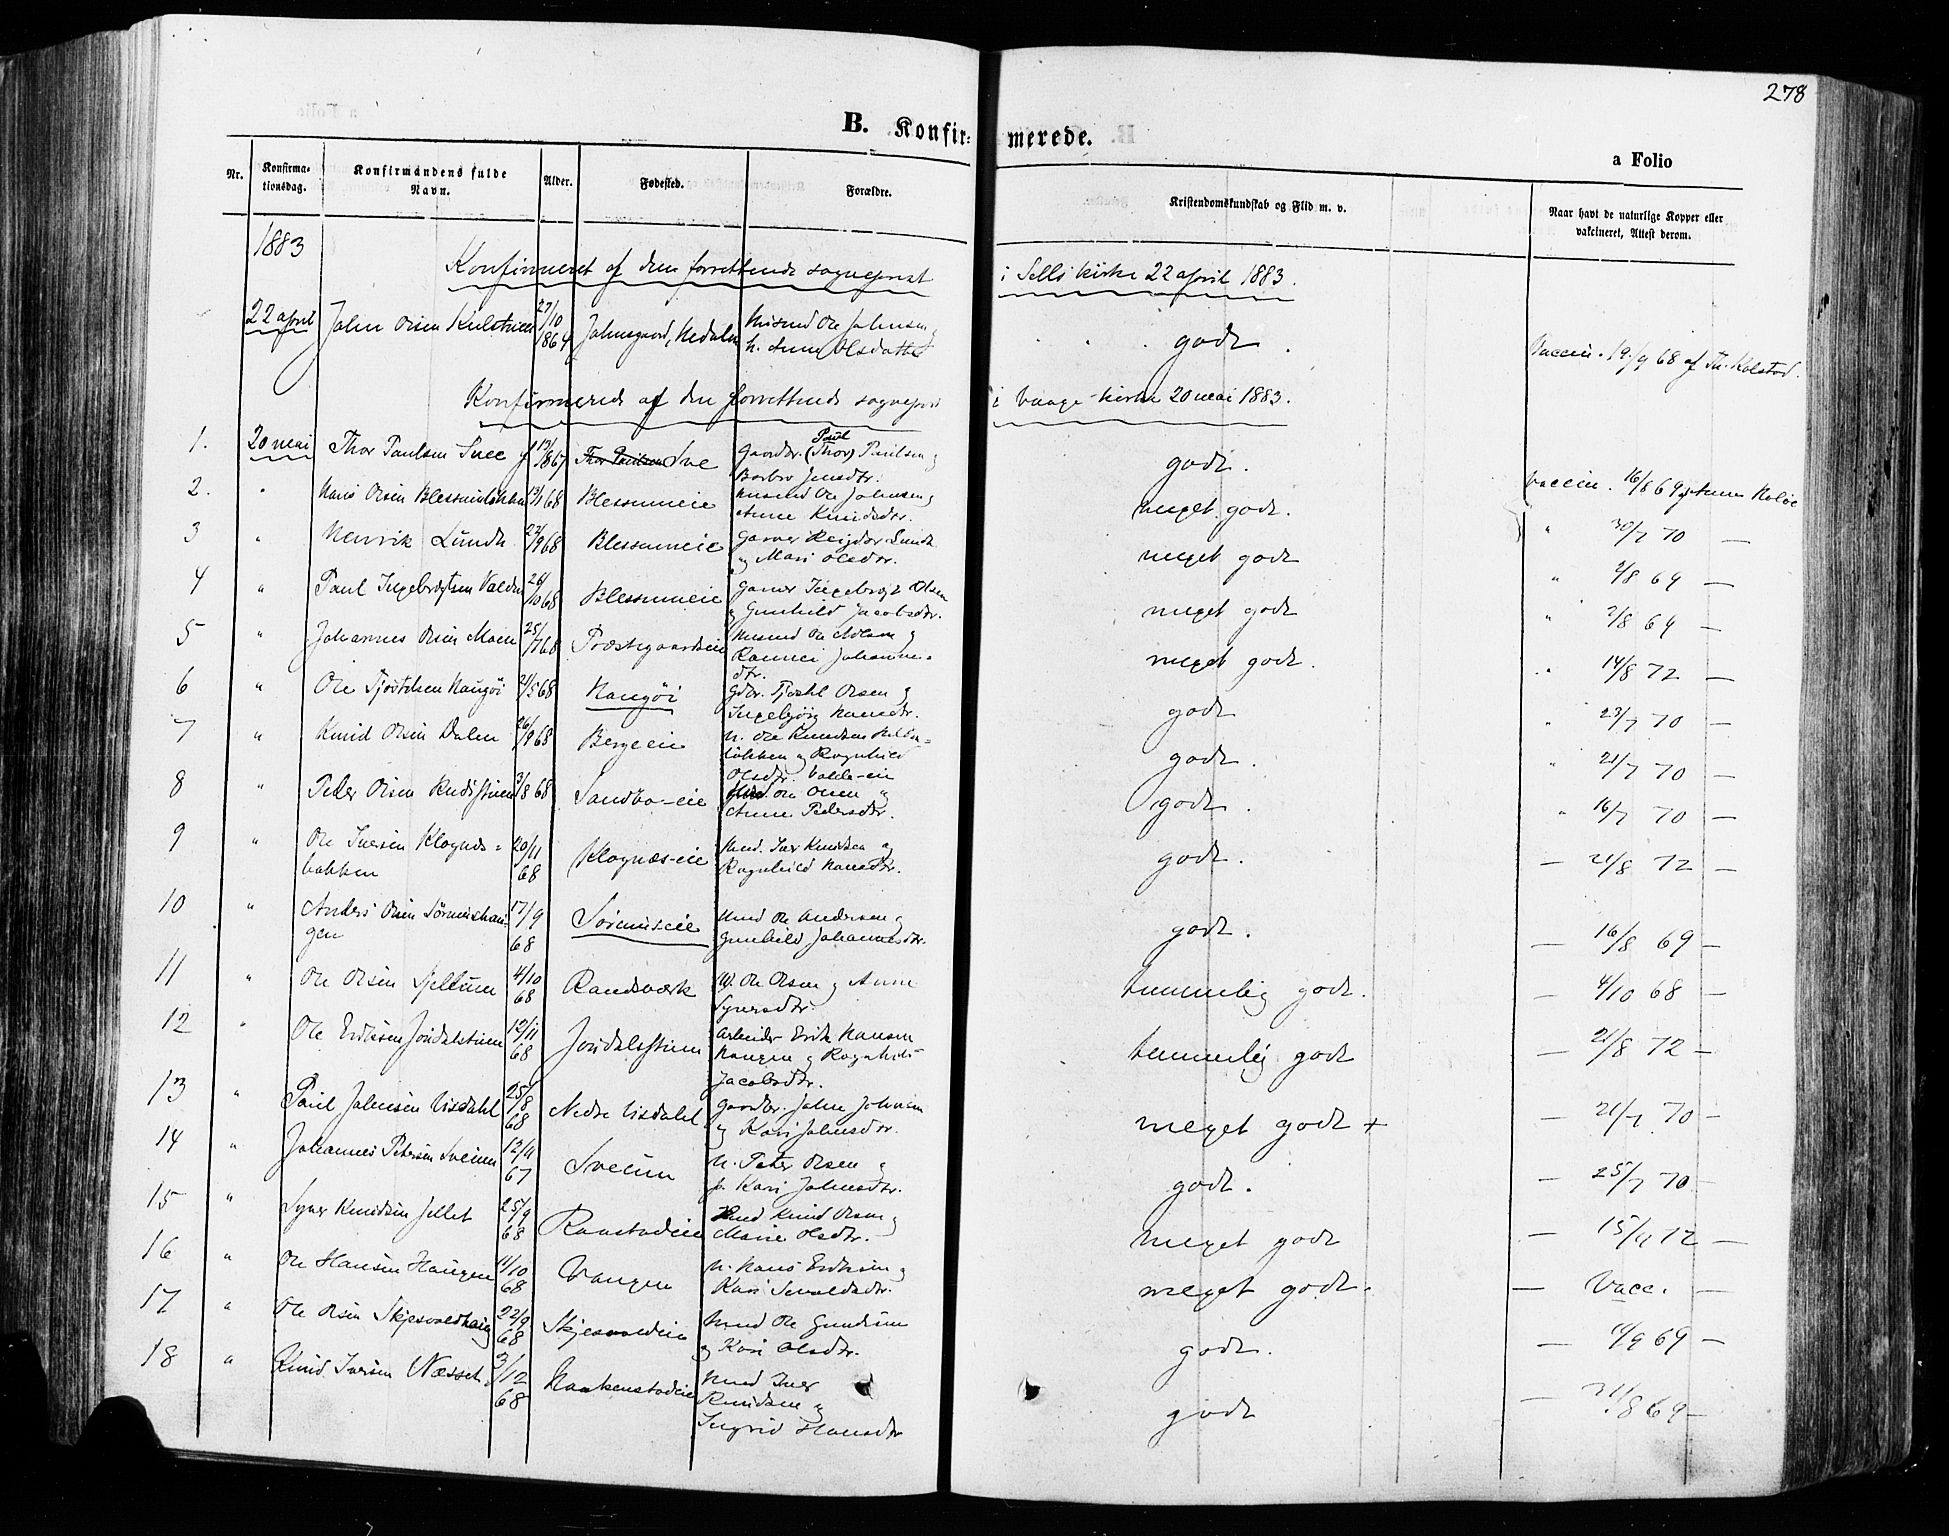 278
B. Konfir- merede.
a Folio
Nr.
Konfirma-
tionsdag.
Konfirmandens fulde
Navn.
Alder.
Fødested.
Forældre.
Kristendomskundskab og Flid m. v.
Naar havt de naturlige Kopper eller
vakcineret, Attest derom.
1883
Konfirmeret af den forrettende sogneprest i Sells kirke 22 april 1883.
22 april John Olsen 27/10 1864 Husmd Ole Johnsen
h. Anne Olsdatter godt Vaccin. 19/9 68 af Th. Kolstad.
Konfirmerede af den forrettende sogneprest i Vaage kirke 20 mai 1883.
1. 20 mai Thor Paulsen Sve 1867 Thor Paulsen Sve Gaardbr. (Thor) Paul Paulsen og
Barbro Jensdtr. godt. vaccin. 16/8 69
2. " Hans Olsen 68 Blessumeie Husmd Ole Johnsen og
Anne Knudsdtr. meget godt. " 30/7 70 —
3 " Henrik Lunde 27/9 68 Blessumeie Garver Lunde
og Mari Olsdtr. meget godt " 2/8 69 —
4 " Paul Ingebrigtsen 26/10 68 Blessumeie Garver Ingebrigt Olsen
og Gunhild Jacobsdtr. meget godt " 2/8 69 —
5 " Johannes Olsen Moen 25/7 68 Præstegaardseie Husmd Ole Olsen og
Rannei Johannes-
dtr. meget godt. " 14/8 72 —
6 " Ole Tjøstelsen Haugøi 21/5 68 Haugøi Gdbr. Olsen og
Ingebjørg Hansdtr. godt " 23/7 70 —
7 " Knud Olsen Dalen 26/9 68 Bergeeie H. Ole Knudsen
løkken og Ragnhild
Olsdtr. Valde-eie godt. " 21/7 70 —
8 " Peder Olsen 3/8 68 Sandbo-eie Ole Olsen og
Anne Pedersdtr. godt. " 16/7 70 —
9 " Ole Iversen Klognæs-
bakken 20/11 68 Klognæs-eie Husmd. Iver Knudsen og
Ragnhild Hansdtr. godt. — 21/8 72 —
10 " Anders Olsen Sørnæshau-
gen 17/9 68 Sørnæseie Husmd Ole Andersen og
Gunhild Johannesdtr. godt. — 16/8 69 —
11 " Ole Olsen 4/10 68 Randsværk Ole Olsen og Anne
Synersdtr. temmelig godt. — 4/10 68 —
12 " Ole Eriksen Jondalstuen 12/11 68 Jondalstuen Arbeider Erik Hansen
Haugen og Ragnhild
Jacobsdtr. temmelig godt — 21/8 72 —
13 " Paul Johnsen Uisdahl 25/8 68 Nedre Uisdahl Gaardbr. John Johnsen
og Kari Johnsdtr. meget godt + — 21/7 70 —
14 " Johannes Petersen Sveum 12/11 67 Sveum H. Peter Olsen og
h. Kari Johnsdtr. godt. — 25/7 70 —
15 " Syver Knudsen Jellet 25/9 68 Raastadeie Husmd Knud Olsen og
Marie Olsdtr. meget godt — 15/11 72 —
16 " Ole Hansen Haugen 11/10 68 Vangen H. Hans Eriksen og
Kari meget godt. — Vacc. —
17 " Ole Olsen Skjesvoldhaug 22/9 68 Skjesvoldeie Husmd Ole
og Kari Olsdtr. godt. — 11/9 69 —
18 " Knud Iversen Næsset 3/12 68 Haakenstadeie Husmd Iver
Knudsen og
Ingrid Hansdtr godt — 31/8 69 —